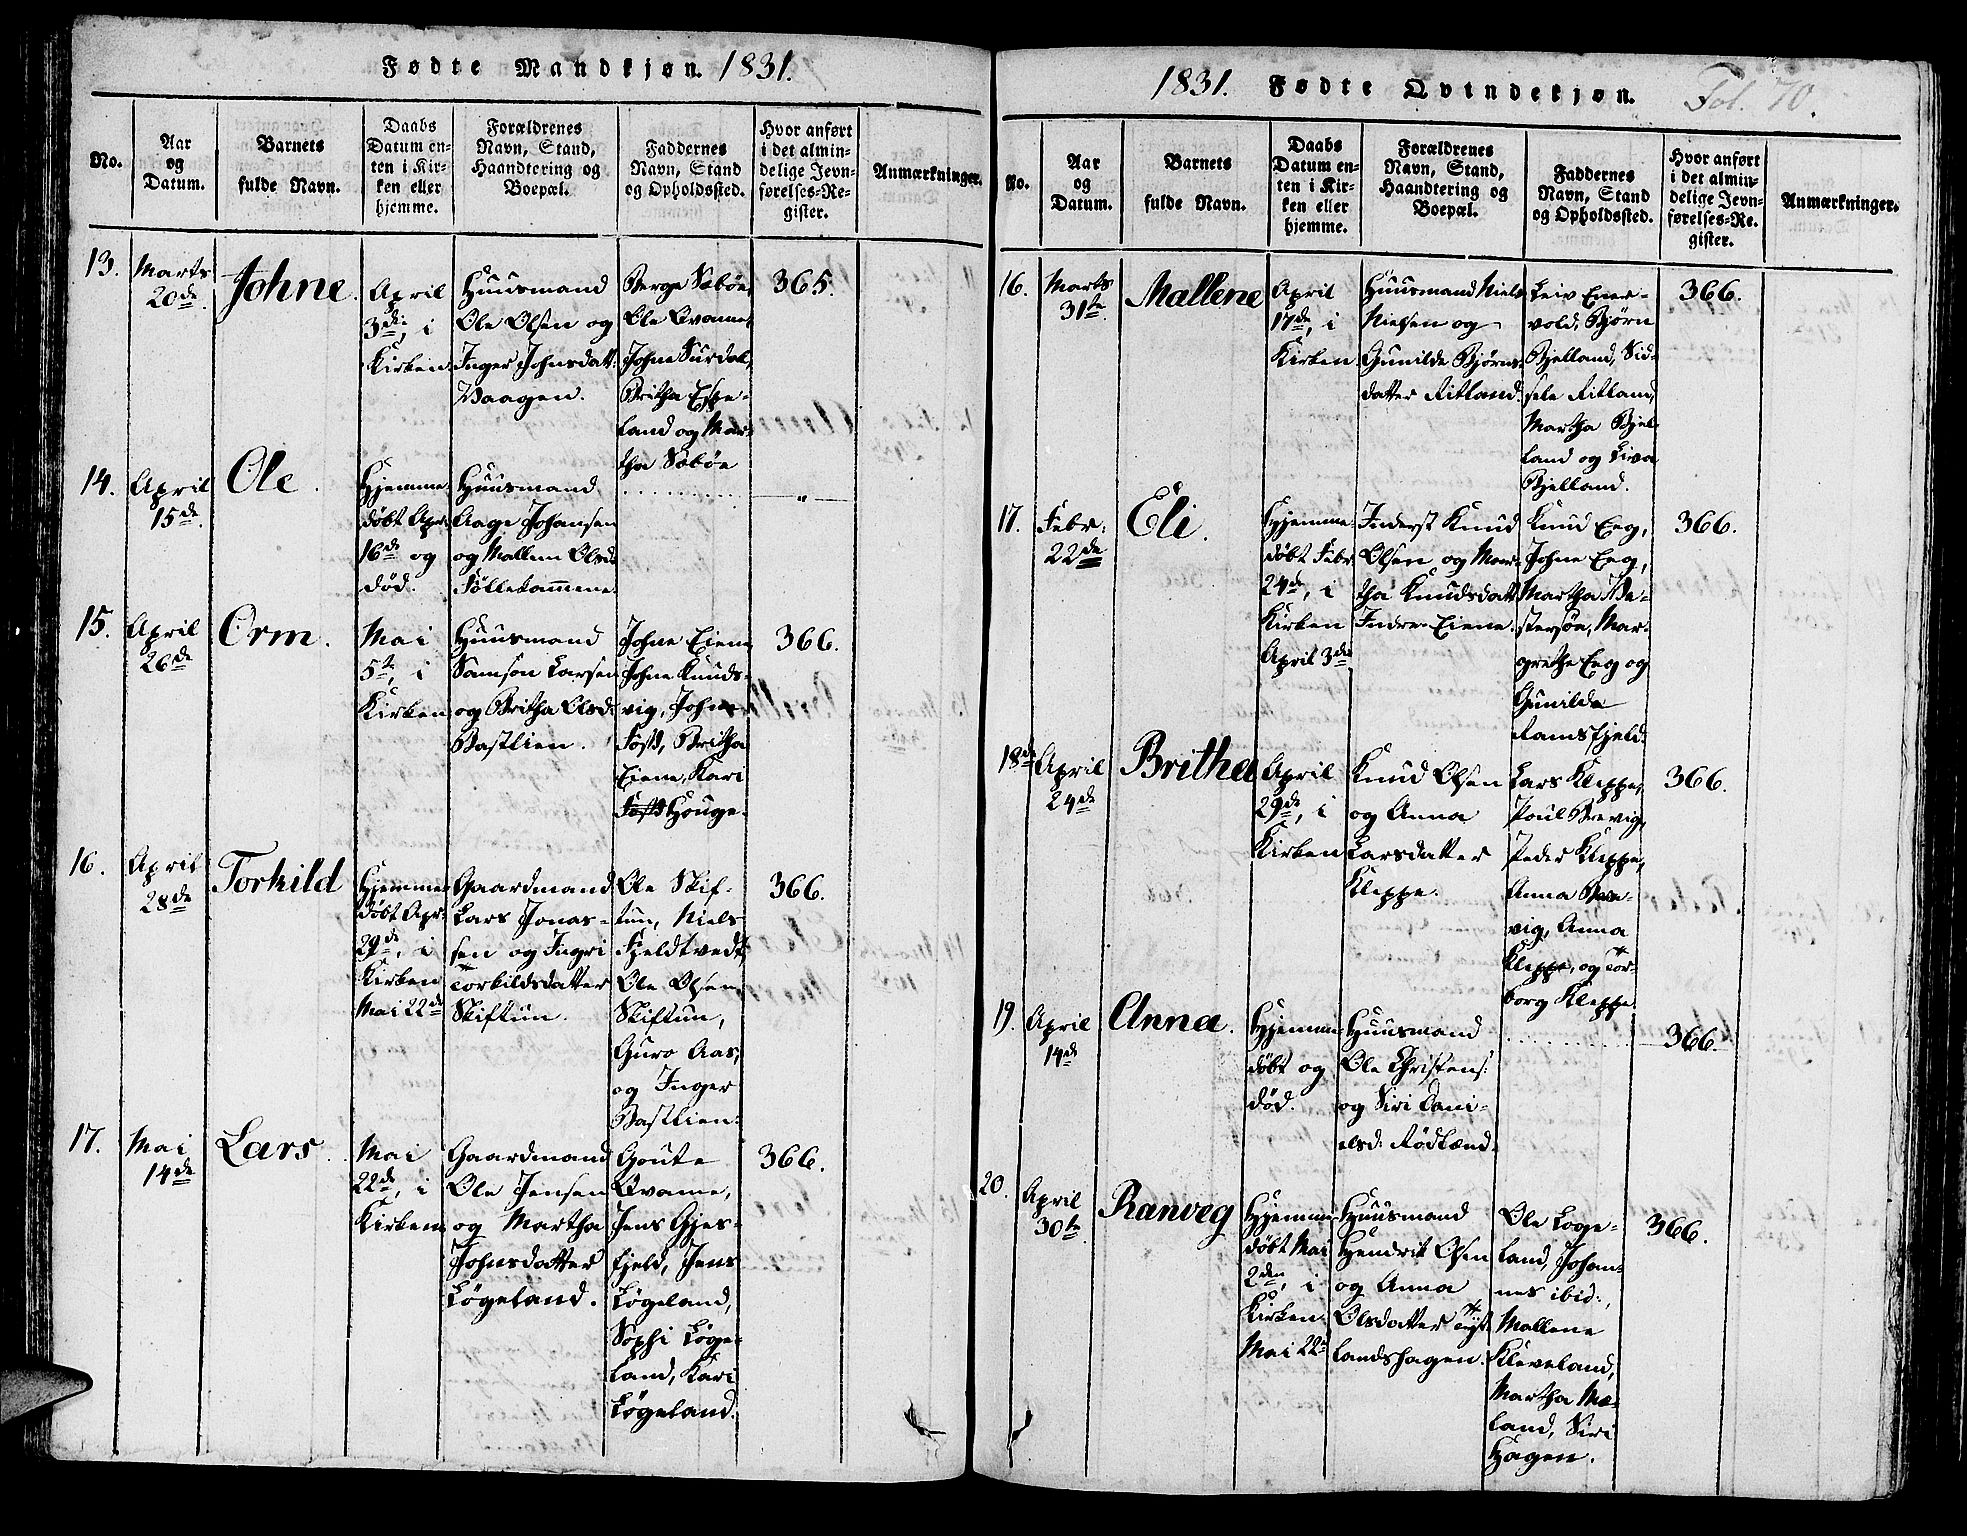 Fødte Mandkjøn. 1831.
No.
Aar
og
Datum.
Barnets
fulde Navn.
Daabs
Datum en-
ten i Kir-
ken eller
hjemme.
Forældrenes
Navn, Stand,
Haandtering og
Boepæl.
Faddernes
Navn, Stand
og Opholdssted.
Hvor anført
i det almin-
delige Jevn-
førelses-Re-
gister.
Anmærkninger.
13.
Marts
20de
Johne.
April
3die, i
Kirken
Huusmand
Ole Olsen og
Inger Johnsdatt:
Vaagen.
Berge Sæbøe,
Ole Qvame,
Johne Surdal,
Britha Espe-
land og Mar-
tha Sæbøe
365.
14.
April
15de
Ole.
Hjemme-
døbt Apr:
16de og
død.
Huusmand
Aage Johansen
og Mallene Olsd:
Tøllekamme.
"
15.
April
26de
Orm.
Mai
5te, i
Kirken
Huusmand
Samson Larsen
og Britha Olsd:
Bastlien.
Johne Eiene
Johne Knuds-
vig, Johne
Fost, Britha
Eiene, Kari
Houge.
366.
16.
April
28de
Torkild
Hjemme-
døbt Apr:
29de, i
Kirken
Mai 22de
Gaardmand
Lars Jonas-
sen og Ingri
Torkildsdatter
Skiftun.
Ole Skif-
tun, Niels
Fjeldtvedt,
Ole Olsen
Skiftun,
Guro Aas,
og Inger
Bastlien.
366.
17.
Mai
14de
Lars.
Mai
22de, i
Kirken
Gaardmand
Ole Jensen
og Martha
Johnsdatter
Løgeland.
Goute
Qvame,
Jens Gjes-
fjeld, Jens
Løgeland,
Sophi Løge-
land, Kari
Løgeland.
366.
1831. Fødte Qvindekjøn. Fol. 70.
No.
Aar
og
Datum.
Barnets
fulde Navn.
Daabs
Datum en-
ten i Kir-
ken eller
hjemme.
Forældrenes
Navn, Stand,
Haandtering og
Boepæl.
Faddernes
Navn, Stand
og Opholdssted.
Hvor anført
i det almin-
delige Jevn-
førelses-Re-
gister.
Anmærkninger.
16.
Marts
31te
Mallene
April
17de, i
Kirken
Huusmand Niels
Nielsen og
Gunilde Bjørns-
datter Ritland.
Leiv Ener-
vold, Bjørn
Bjelland, Sid-
sele Ritland,
Martha Bjel-
land og Liva
Bjelland.
366.
17.
Febr:
22de
Eli.
Hjemme-
døbt Febr:
24de, i
Kirken
April 3die
Inderst Knud
Olsen og Mar-
tha Knudsdatt:
Indre-Eiene.
Knud Eeg,
Johne Eeg,
Martha Ve-
stersøe, Mar-
grethe Eeg og
Gunilda
Ramsfjeld.
366.
18de
April
24de
Britha
April
29de, i
Kirken
Knud Olsen
og Anna
Larsdatter
Kleppe.
Lars Kleppe,
Poul Brevig,
Peder Kleppe,
Anna Bre-
vig, Anna
Kleppe, og Tor-
borg Kleppe.
366.
19.
April
14de
Anna.
Hjemme-
døbt og
død.
Huusmand
Ole Christens:
og Siri Dani-
elsd: Rødland.
366.
20.
April
30te
Ranveg
Hjemme-
døbt Mai
2den, i
Kirken
Mai 22de
Huusmand
Hendrik Olsen
og Anna
Olsdatter Tyt-
landshagen.
Ole Loge-
land, Johan-
nes ibid:,
Mallene
Kleveland,
Martha Mæ-
land, Siri
Hagen.
366.